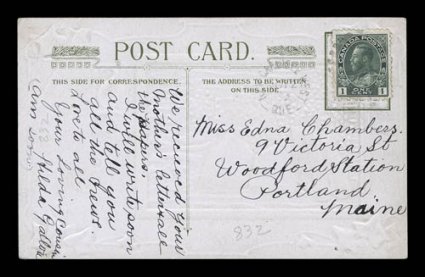 POST CARD.
THIS SIDE FOR CORRESPONDENCE.
THE ADDRESS TO BE WRITTEN
ON THIS SIDE.
CANADA POSTAGE
1 1
We received your
Mother's letter & all
the papers.
I will write soon
and tell you
all the news.
Love to all
Your Loving Cousin
Hilda
Miss Edna Chambers.
9 Victoria St
Woodford Station
Portland
Maine
832